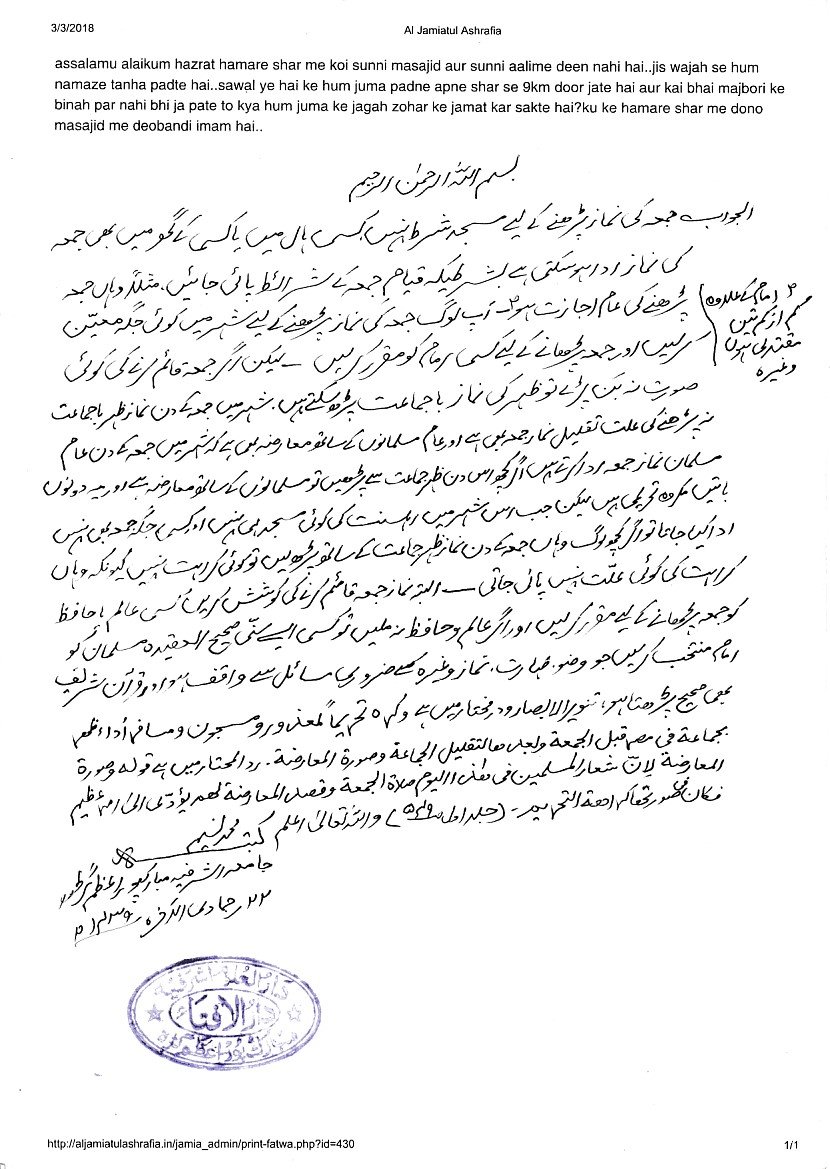 3/3/2018
Al Jamiatul Ashrafia
assalamu alaikum hazrat hamare shar me koi sunni masajid aur sunni aalime deen nahi hai..jis wajah se hum
namaze tanha padte hai..sawal ye hai ke hum juma padne apne shar se 9km door jate hai aur kai bhai majbori ke
binah par nahi bhi ja pate to kya hum juma ke jagah zohar ke jamat kar sakte hai?ku ke hamare shar me dono
masajid me deobandi imam hai..
بسم اللہ الرحمٰن الرحیم
الجواب جمعہ کی نماز پڑھنے کے لیے مسجد شرط نہیں، کسی ہال میں یا کسی کے گھر میں بھی جمعہ
کی نماز ادا ہو سکتی ہے بشرطیکہ قیام جمعہ کے شرائط پائی جائیں، مثلاً وہاں جمعہ
پڑھنے کی عام اجازت ہو۔ آپ لوگ جمعہ کی نماز پڑھنے کے لیے شہر میں کوئی جگہ معین
امام کے علاوہ
کم از کم تین
مقتدی ہوں
وغیرہ
کر لیں اور جمعہ پڑھانے کے لیے کسی امام کو مقرر کر لیں ۔ لیکن اگر جمعہ قائم کرنے کی کوئی
صورت نہ بن پڑے تو ظہر کی نماز باجماعت پڑھ سکتے ہیں۔ شہر میں جمعہ کے دن نماز ظہر باجماعت
نہ پڑھنے کی علت تقلیل نماز جمعہ بھی ہے اور عام مسلمانوں کے ساتھ معارضہ بھی ہے کہ شہر میں جمعہ کے دن عام
مسلمان نماز جمعہ ادا کرتے ہیں اگر کچھ اس دن ظہر جماعت سے پڑھیں تو مسلمانوں کے ساتھ معارضہ ہے اور یہ دونوں
باتیں مکروہ تحریمی ہیں لیکن جب اس شہر میں اہلسنت کی کوئی مسجد ہی نہیں اور کسی جگہ جمعہ بھی نہیں
ادا کیا جاتا تو اگر کچھ لوگ وہاں جمعہ کے دن نماز ظہر جماعت کے ساتھ پڑھ لیں تو کوئی کراہت نہیں کیونکہ وہاں
کراہت کی کوئی علت نہیں پائی جاتی ۔ البتہ نماز جمعہ قائم کرنے کی کوشش کریں کسی عالم یا حافظ
کو جمعہ پڑھانے کے لیے مقرر کر لیں اور اگر عالم و حافظ نہ ملیں تو کسی ایسے سنی صحیح العقیدہ مسلمان کو
امام منتخب کر لیں جو وضو، طہارت، نماز وغیرہ کے ضروری مسائل سے واقف ہو اور قرآن شریف
بھی صحیح پڑھتا ہو، تنویر الابصار و در مختار میں ہے وکرہ تحریماً لمعذور ومسجون ومسافر أداء ظهر
بجماعة فی مصر قبل الجمعة وبعدها لتقلیل الجماعة وصورة المعارضة ۔ رد المحتار میں ہے قوله وصورة
المعارضة لان شعار المسلمین فی هذا الیوم صلاة الجمعة وقصد المعارضة لهم یؤدی الی امر عظیم
فکان فی صورتها کراهة التحریم ۔ (جلد اول) واللہ تعالیٰ اعلم
کتبہ محمد نسیم
جامعہ اشرفیہ مبارکپور اعظم گڑھ
۲۲ جمادی الآخرہ
دار العلوم اشرفیہ
دار الافتاء
مبارک پور اعظم گڑھ
http://aljamiatulashrafia.in/jamia_admin/print-fatwa.php?id=430
1/1